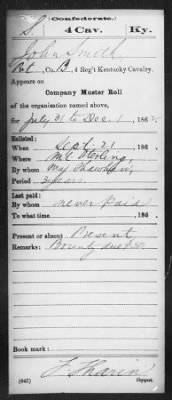 Confederate.
S. 4 Cav. Ky.
John Smith
Pvt, Co. B, 4 Reg't Kentucky Cavalry.
Appears on
Company Muster Roll
of the organization named above,
for July 31 to Dec. 1, 186
Enlisted:
When Sept. 21, 186
Where Mt. Sterling,
By whom Maj
Period 3 years
Last paid:
By whom never paid
To what time , 186 .
Present or absent Present
Remarks: Bounty due
Book mark:
(642) Copyist.